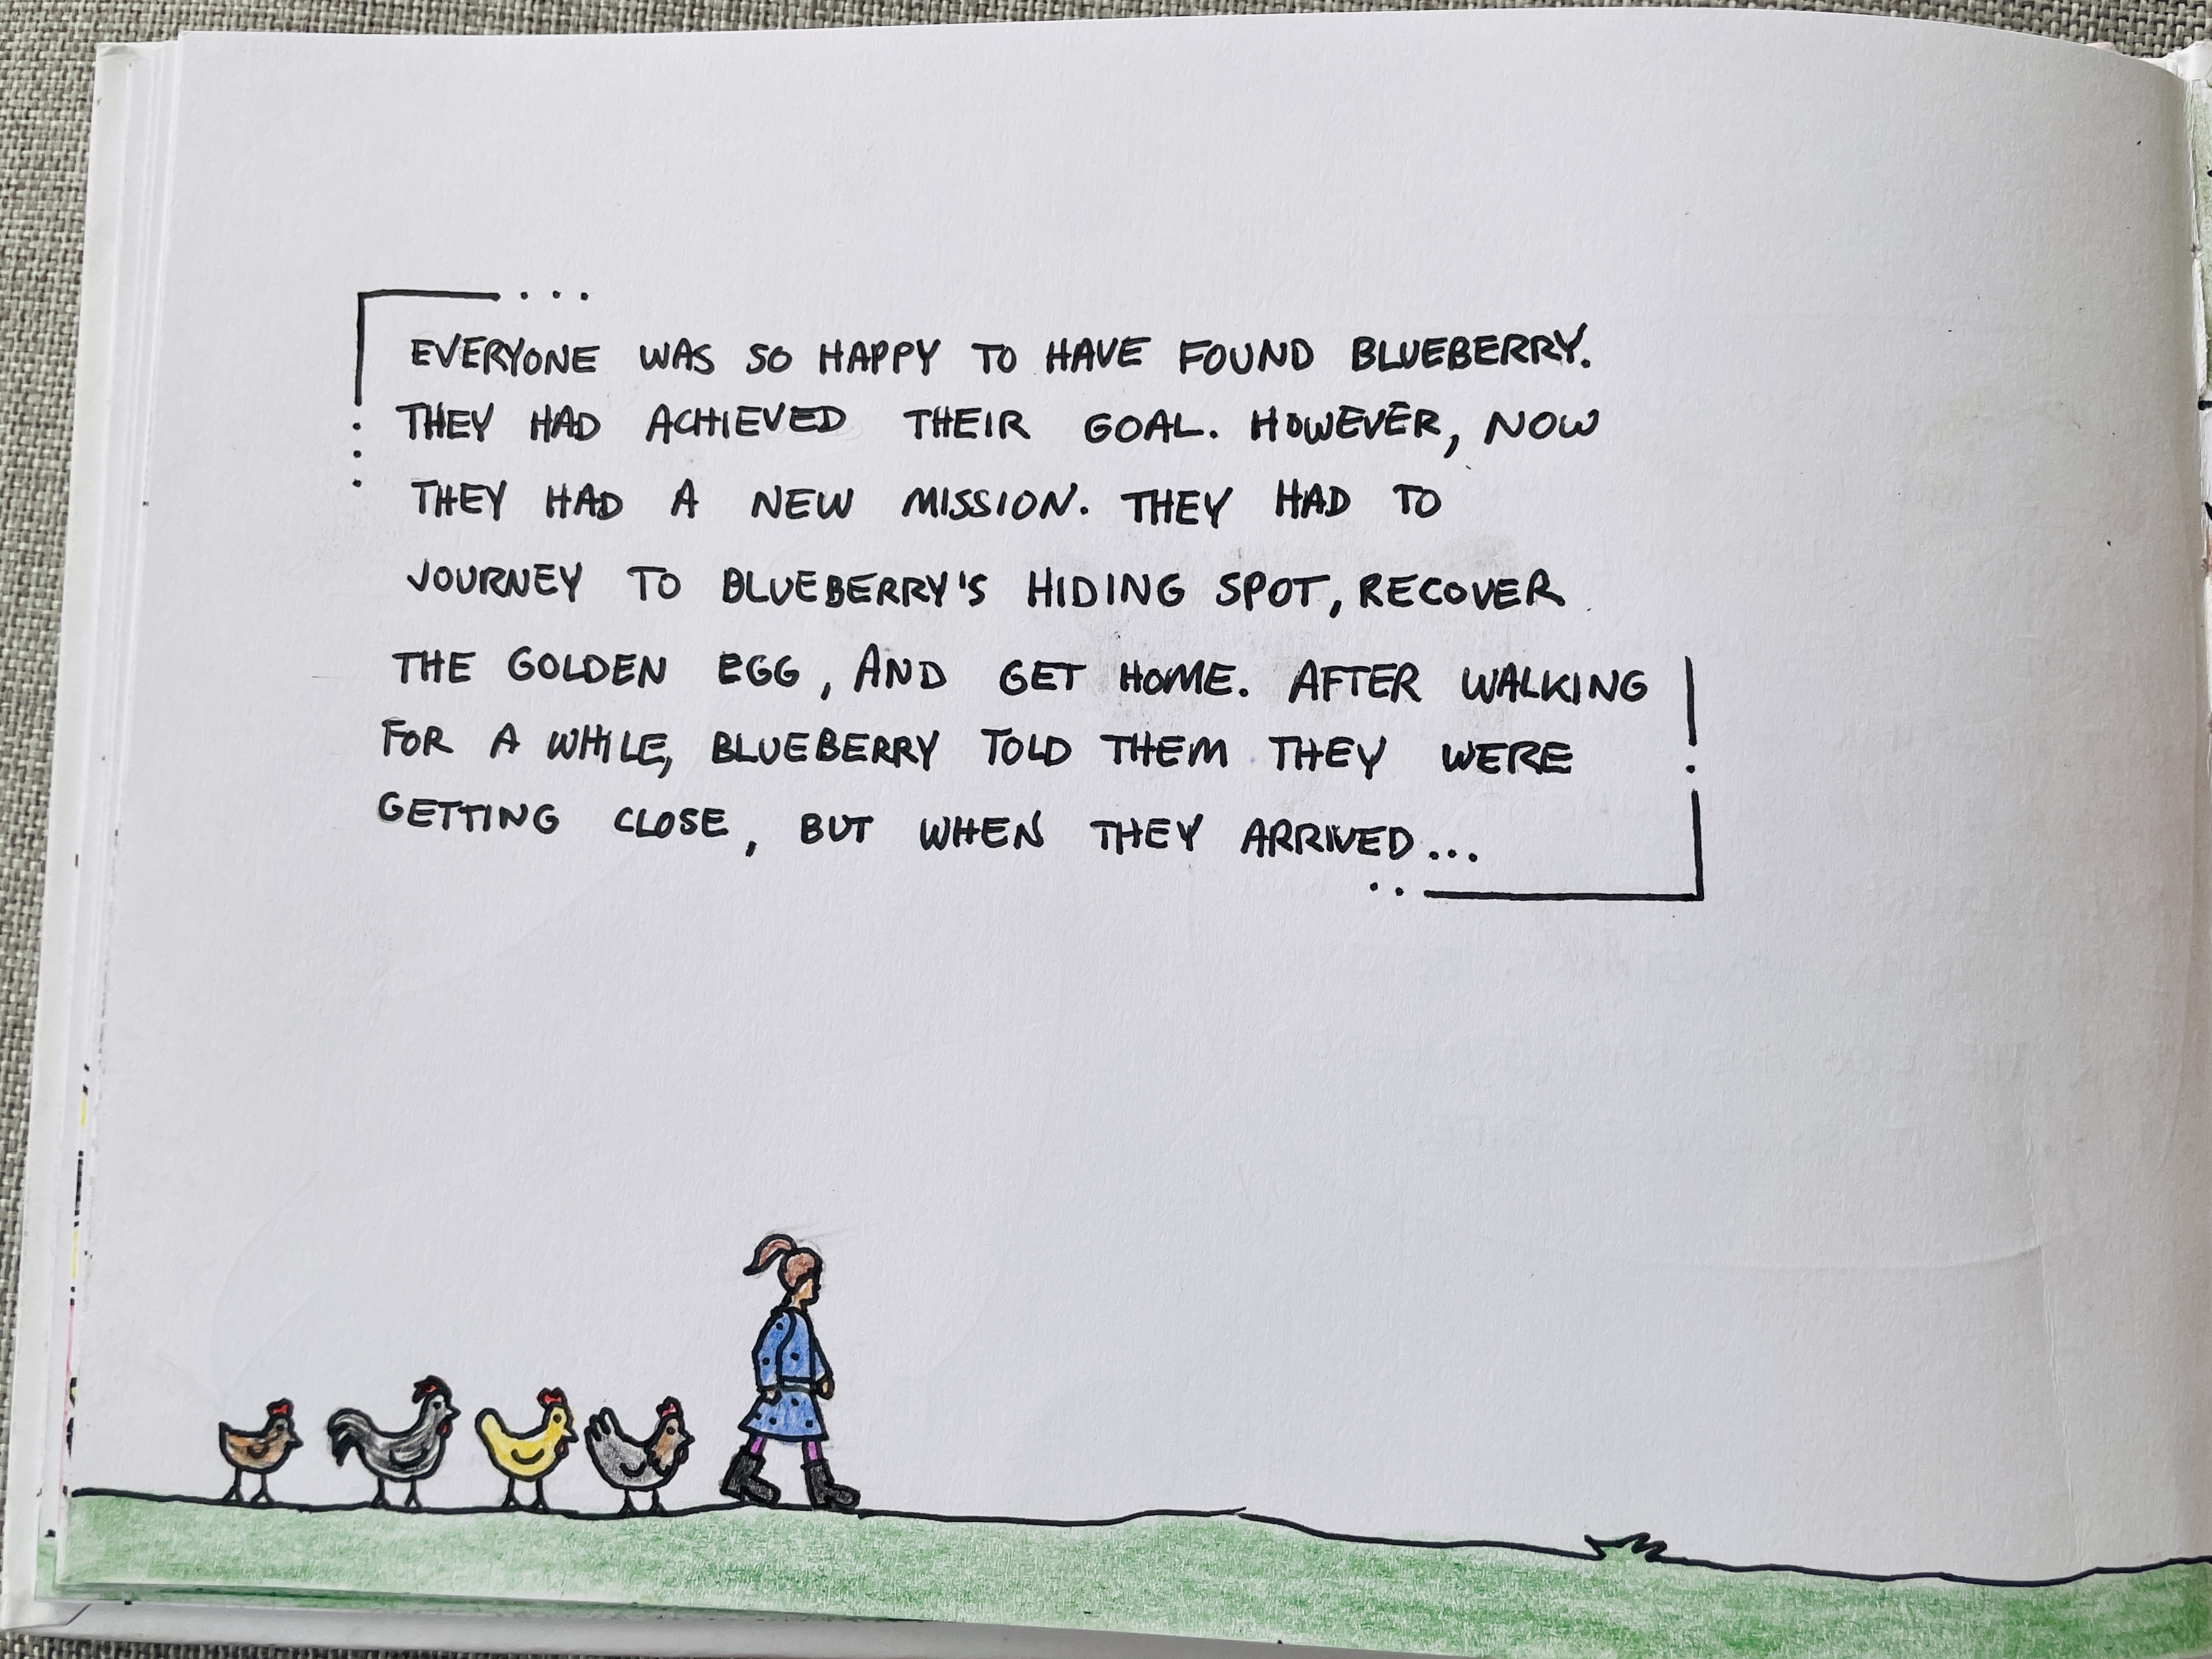 EVERYONE WAS SO HAPPY TO HAVE FOUND BLUEBERRY.
THEY HAD ACHIEVED THEIR GOAL. HOWEVER, NOW
THEY HAD A NEW MISSION. THEY HAD TO
JOURNEY TO BLUEBERRY'S HIDING SPOT, RECOVER
THE GOLDEN EGG, AND GET HOME. AFTER WALKING
FOR A WHILE, BLUEBERRY TOLD THEM THEY WERE
GETTING CLOSE, BUT WHEN THEY ARRIVED...